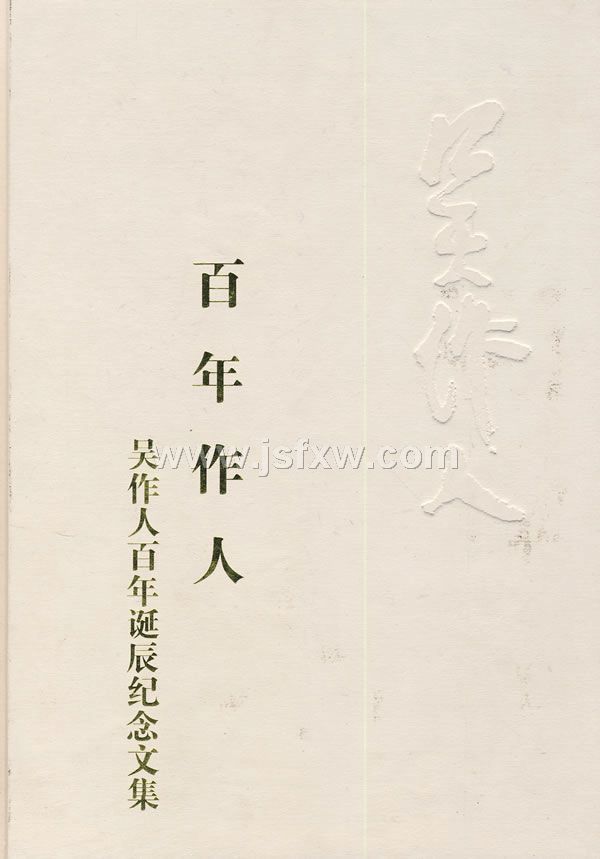 吴作人
百年作人
吴作人百年诞辰纪念文集
www.jsfxw.com